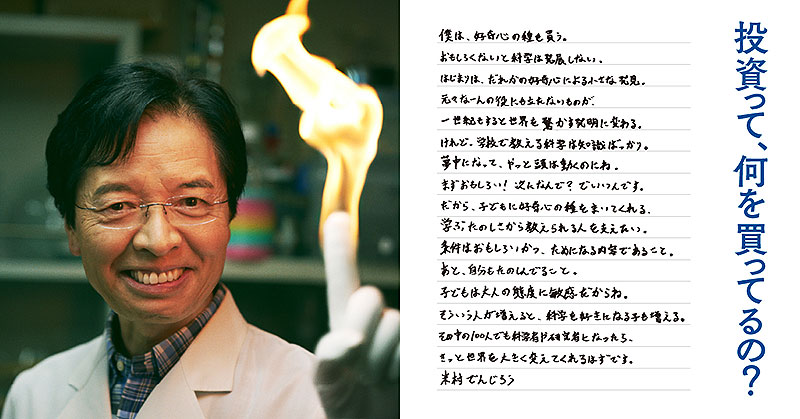 投資って、何を買ってるの?
僕は、好奇心の種を買う。
おもしろくないと科学は発展しない。
はじまりは、だれかの好奇心による小さな発見。
元々なーんの役にも立たないものが、
一世紀もすると世界を驚かす発明に変わる。
けれど、学校で教える科学は知識ばっかり。
夢中になって、やっと頭は動くのにね。
まずおもしろい! 次になんで? でいいんです。
だから、子どもに好奇心の種をまいてくれる、
学ぶたのしさから教えられる人を支えたい。
条件はおもしろいかつ、ためになる内容であること。
あと、自分もたのしんでること。
子どもは大人の態度に敏感だからね。
そういう人が増えると、科学を好きになる子も増える。
その中の100人でも科学者や研究者になったら、
きっと世界を大きく変えてくれるはずです。
米村でんじろう